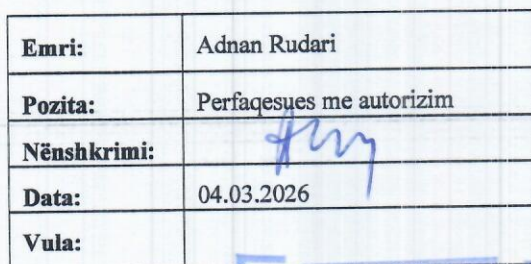 Emri: Adnan Rudari
Pozita: Perfaqesues me autorizim
Nënshkrimi:
Data: 04.03.2026
Vula: